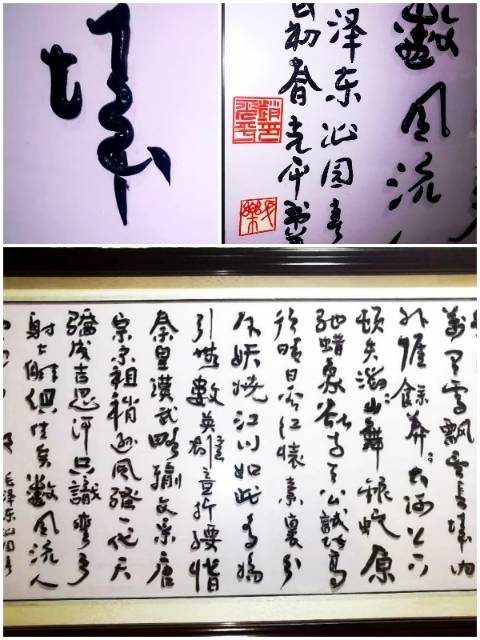 数风流
泽东沁园春
初春克平
萬里雪飄望长城内
外惟餘莽〻大河上下
顿失滔〻山舞银蛇原
驰蜡象欲与天公試比高
须晴日看红装素裹分
外妖娆江山如此多娇
引无数英雄竞折腰惜
秦皇漢武略输文采唐
宗宋祖稍逊风骚一代天
骄成吉思汗只識弯弓
射大雕俱往矣数风流人
毛泽东沁园春